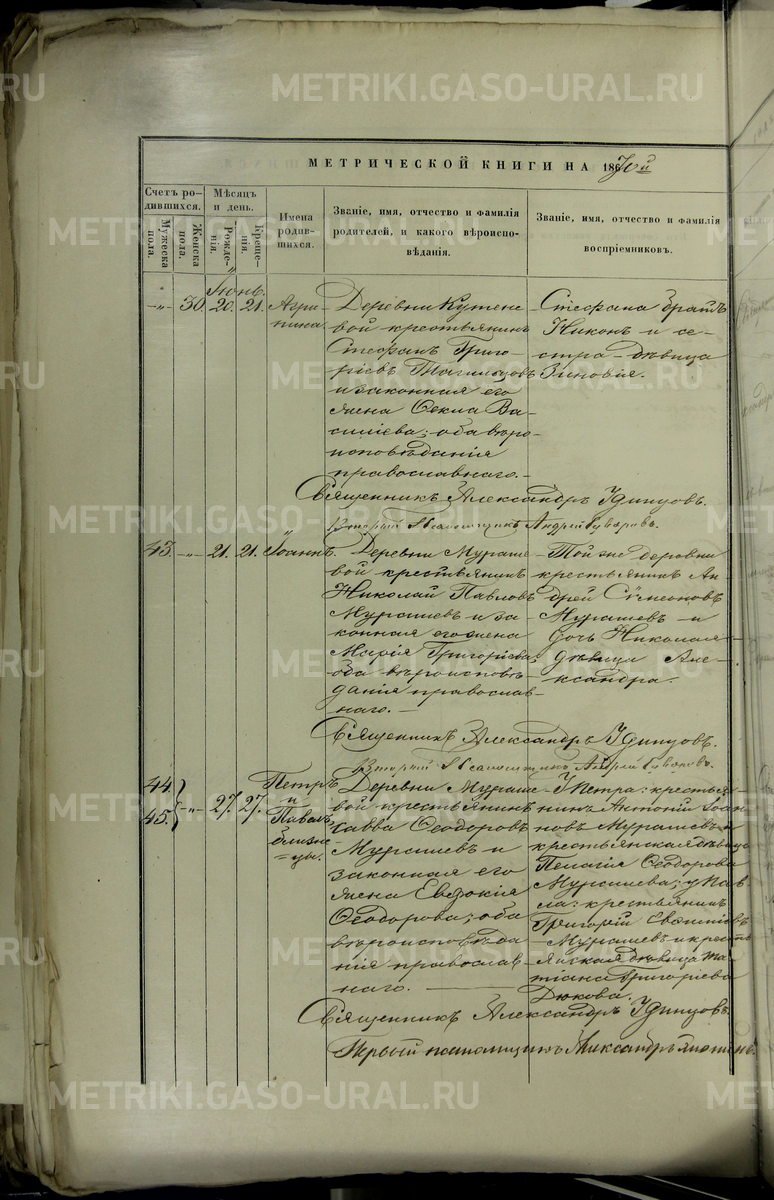 METRIKI.GASO-URAL.RU
МЕТРИЧЕСКОЙ КНИГИ НА 1870й
Счетъ ро-
дившихся.
Мужеска
пола.
Женска
пола.
Мѣсяцъ
и день.
Рожде-
нія.
Креще-
нія.
Имена
родив-
шихся.
Званіе, имя, отчество и фамилія
родителей, и какого вѣроиспо-
вѣданія.
Званіе, имя, отчество и фамилія
воспріемниковъ.
Іюнь.
—„— 30. 20. 21.
Агри-
пина
Деревни Кутене-
вой крестьянинъ
Стефанъ Григо-
ріевъ Тагильцовъ
и законная его
жена Фекла Ва-
силіева; оба вѣро-
исповѣданія
православнаго.—
Стефана братъ
Никонъ и се-
стра дѣвица
Зиновія.
Священникъ Александръ Удинцовъ.
Вторый Псаломщикъ Андрей Суворовъ.
43. —„— 21. 21.
Іоаннъ.
Деревни Мураше-
вой крестьянинъ
Николай Павловъ
Мурашевъ и за-
конная его жена
Марія Григоріева;
оба вѣроисповѣ-
данія православ-
наго.—
Той же деревни
крестьянинъ Ан-
дрей Сѵмеоновъ
Мурашевъ и
дочь Николая
дѣвица Але-
ксандра.
Священникъ Александръ Удинцовъ.
Вторый Псаломщикъ Андрей Суворовъ.
44.
45.
—„— 27. 27.
Петръ
и
Павелъ,
близне-
цы.
Деревни Мураше-
вой крестьянинъ
Савва Феодоровъ
Мурашевъ и
законная его
жена Евдокія
Феодорова; оба
вѣроисповѣда-
нія православ-
наго. —
У Петра: крестья-
нинъ Антоній Іоан-
новъ Мурашевъ и
крестьянская дѣвица
Пелагія Феодорова
Мурашева; у Пав-
ла: крестьянинъ
Григорій
Мурашевъ и кресть-
янская дѣвица Та-
тіана Григоріева
Дюкова.
Священникъ Александръ Удинцовъ.
Первый псаломщикъ Александръ